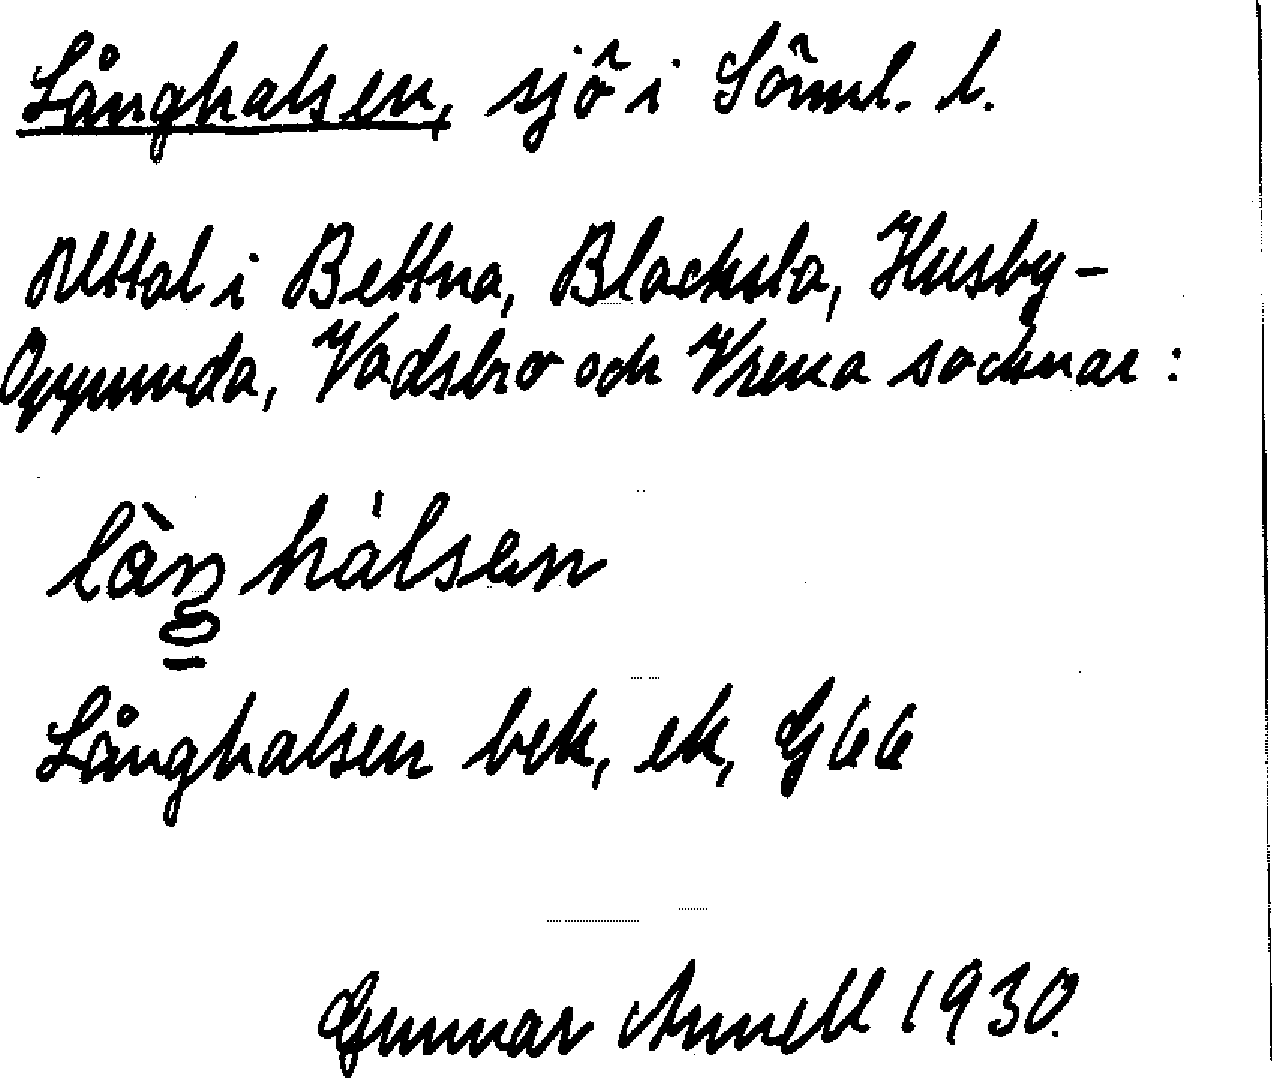 Långhalsen, sjö i Söml. l.
Uttal i Bettna, Blacksta, Husby-
Oppunda, Vadsbro och Vrena socknar:
lån̥hálsen
Långhalsen bek, ek, G 66
Gunnar Annell 1930.